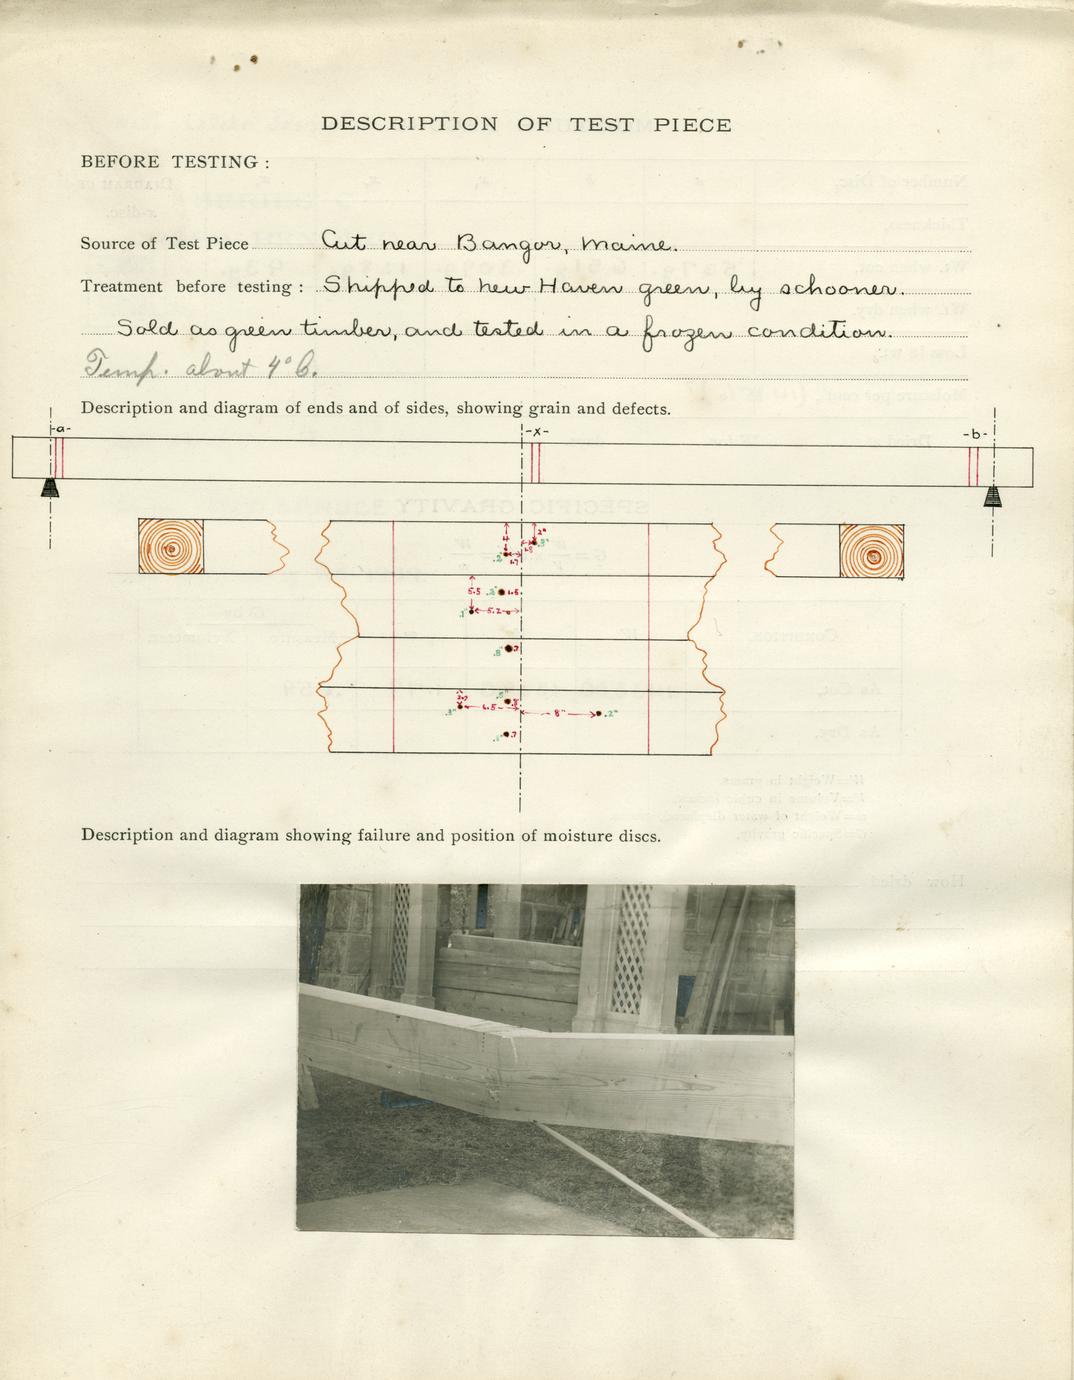 DESCRIPTION OF TEST PIECE
BEFORE TESTING :
Source of Test Piece Cut near Bangor, Maine.
Treatment before testing : Shipped to new Haven green, by schooner.
Sold as green timber, and tested in a frozen condition.
Temp. about 4° C.
Description and diagram of ends and of sides, showing grain and defects.
-a- -x- -b-
2"
.2" 1.7 1.5 .3"
5.5 1.6
.1" 5.2
.8" .7
2.7 .5"
.3" 6.5 8" .2"
.7
Description and diagram showing failure and position of moisture discs.